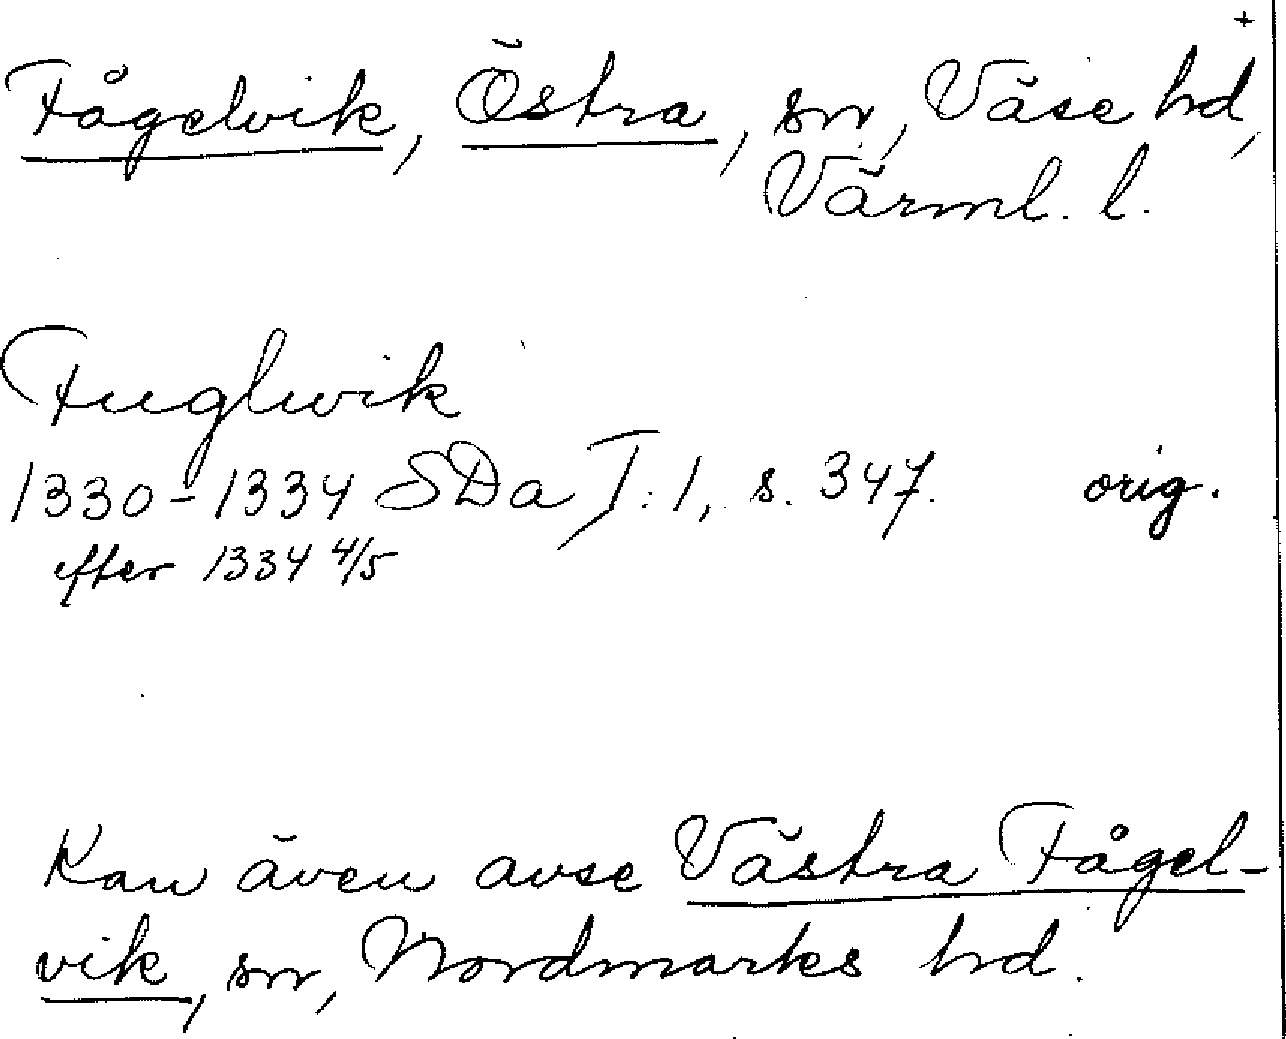 +
Fågelvik, Östra, sn, Väse hd,
Värml. l.
Fuglwik
1330-1334 SDa I:1, s. 347. orig.
efter 1334 4/5
Kan även avse Västra Fågel-
vik, sn, Nordmarks hd.